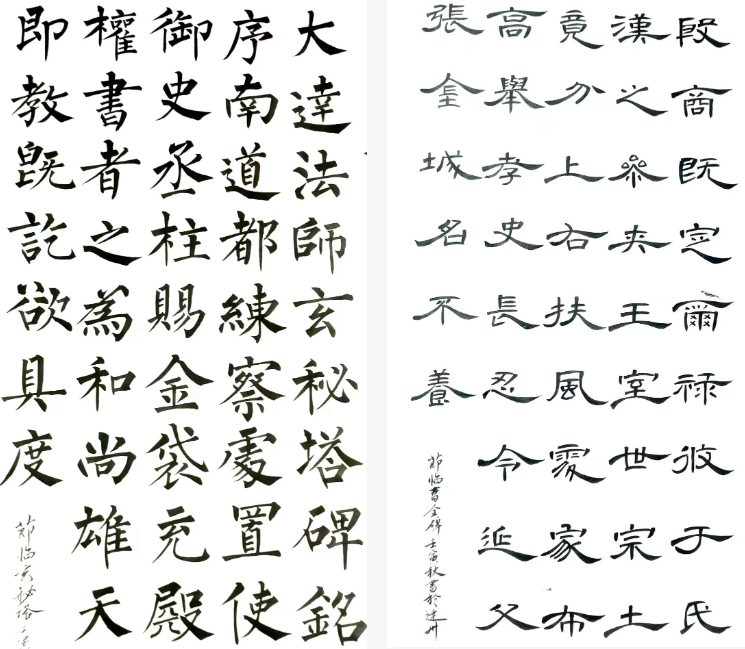 大達法師玄秘塔碑銘
序南道都練察處置使
御史丞柱賜金袋充殿
權書者之為和尚雄天
即教既訖欲具度
節临玄秘塔
殷商既定爾祿攸于氏
漢之參夾王室世宗土
竟分上右扶風處家布
高舉孝史長忍令延父
張金城名不養
節临曹全碑壬寅秋書於達州